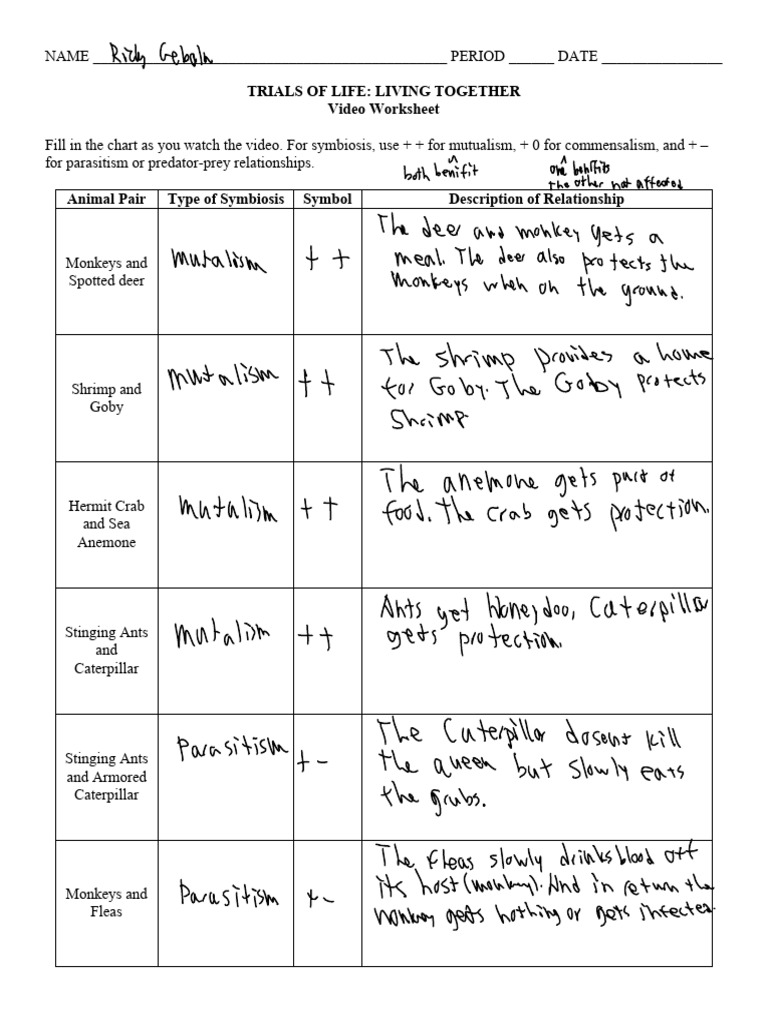 NAME Ricky Gebala PERIOD ______ DATE ________________
TRIALS OF LIFE: LIVING TOGETHER
Video Worksheet
Fill in the chart as you watch the video. For symbiosis, use + + for mutualism, + 0 for commensalism, and + –
for parasitism or predator-prey relationships.
both benifit
one benifits
the other not affected
Animal Pair Type of Symbiosis Symbol Description of Relationship
Monkeys and
Spotted deer
mutalism
+ +
The deer and monkey gets a
meal. The deer also protects the
monkeys when on the ground.
Shrimp and
Goby
mutalism
+ +
The shrimp provides a home
for Goby. The Goby protects
Shrimp
Hermit Crab
and Sea
Anemone
mutalism
+ +
The anemone gets part of
food. The crab gets protection.
Stinging Ants
and
Caterpillar
mutalism
+ +
Ants get honeydoo, Caterpillar
gets protection.
Stinging Ants
and Armored
Caterpillar
Parasitism
+ -
The Caterpillar dosent kill
the queen but slowly eats
the grubs.
Monkeys and
Fleas
Parasitism
+ -
The Fleas slowly drinks blood off
its host (monkey). And in return the
monkey gets nothing or gets infected.